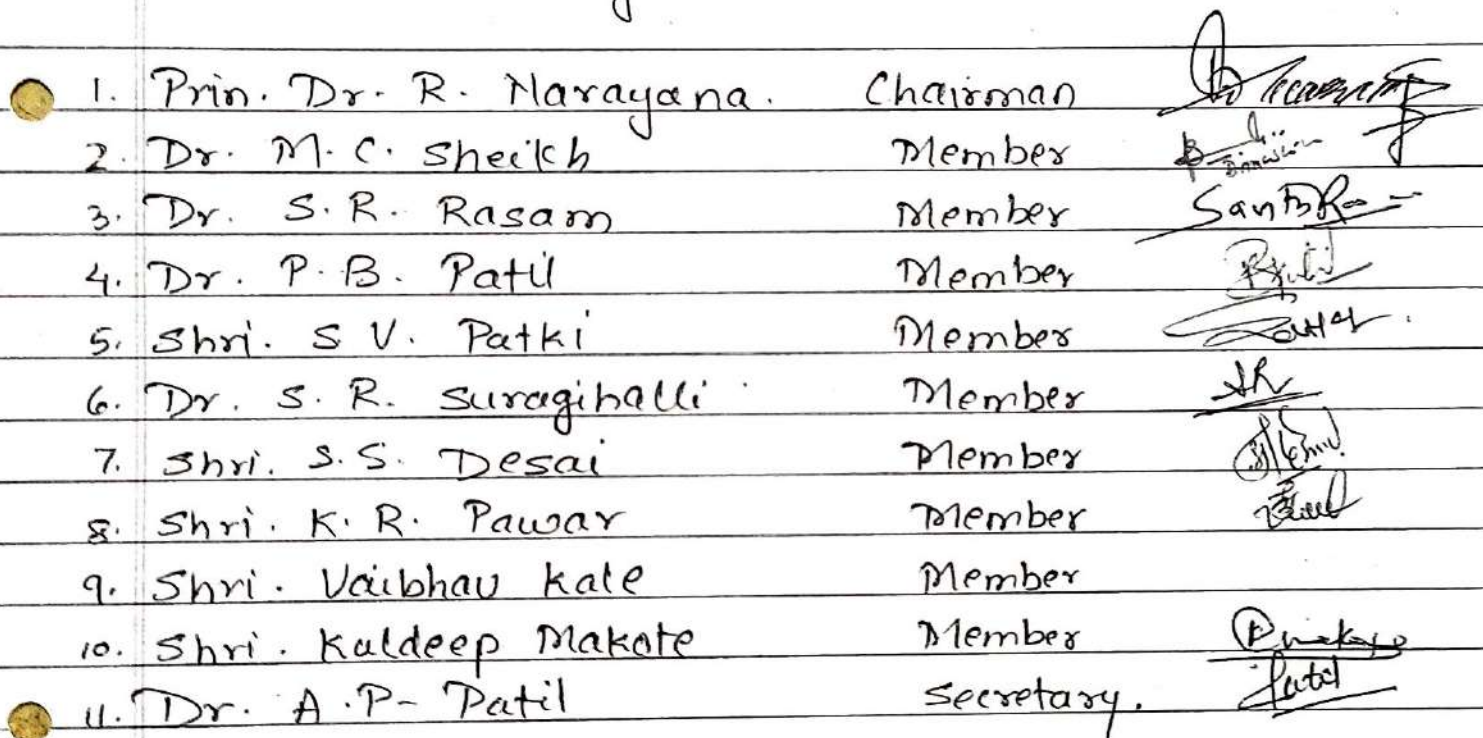 1. Prin. Dr. R. Narayana. Chairman
2. Dr. M. C. Sheikh Member
3. Dr. S. R. Rasam Member
4. Dr. P. B. Patil Member
5. Shri. S V. Patki Member
6. Dr. S. R. Suragihalli Member
7. Shri. S. S. Desai Member
8. Shri. K. R. Pawar Member
9. Shri. Vaibhav Kale Member
10. Shri. Kuldeep Makote Member
11. Dr. A. P- Patil Secretary.